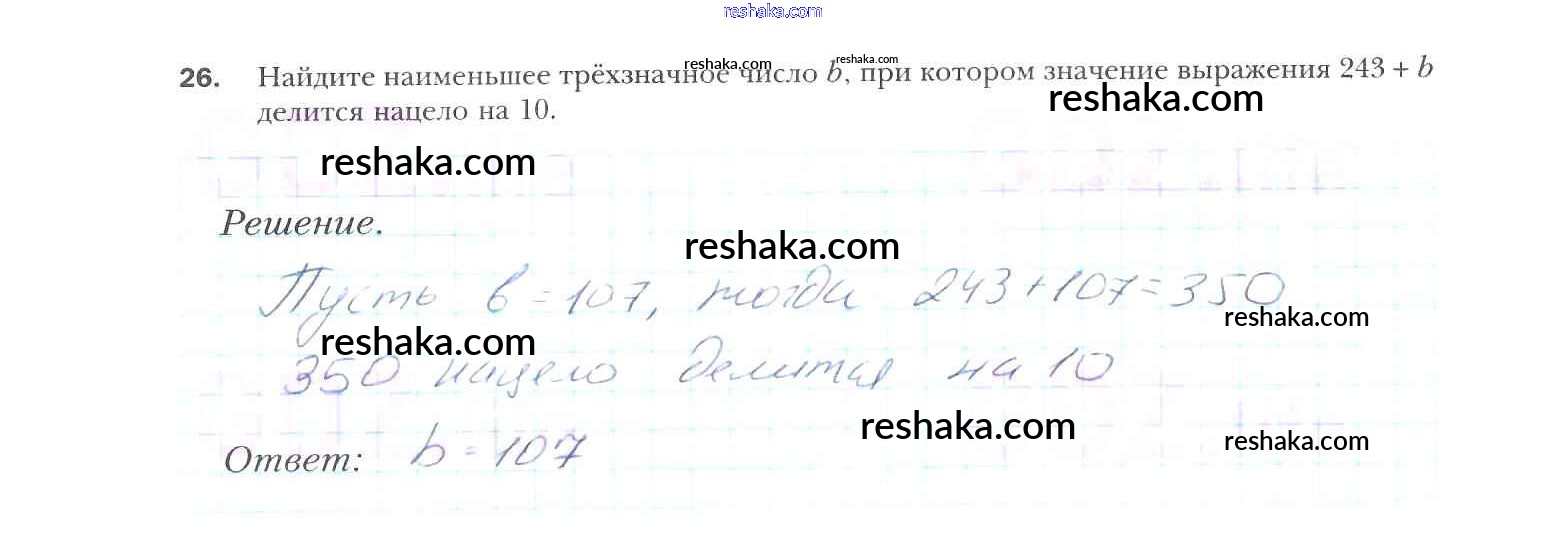 reshaka.com
reshaka.com reshaka.com
26. Найдите наименьшее трёхзначное число b, при котором значение выражения 243 + b
reshaka.com
делится нацело на 10.
reshaka.com
Решение.
reshaka.com
Пусть b = 107, тогда 243 + 107 = 350
reshaka.com
reshaka.com
350 нацело делится на 10
reshaka.com
reshaka.com
Ответ: b = 107